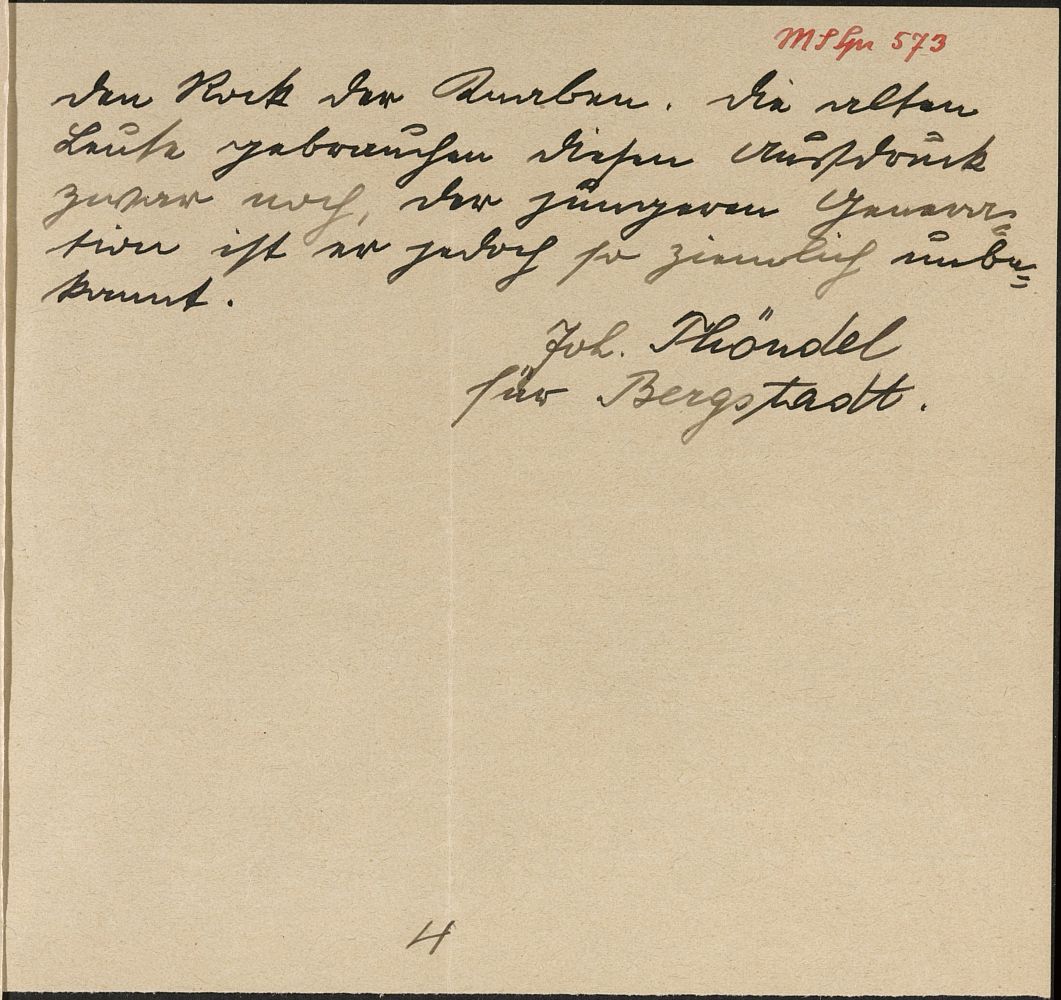 MSpr 573
den Rock der Knaben. Die alten
Leute gebrauchen diesen Ausdruck
zwar noch, der jüngeren Genera=
tion ist er jedoch so ziemlich unbe=
kannt.
Joh. Thöndel
für Bergstadt.
4